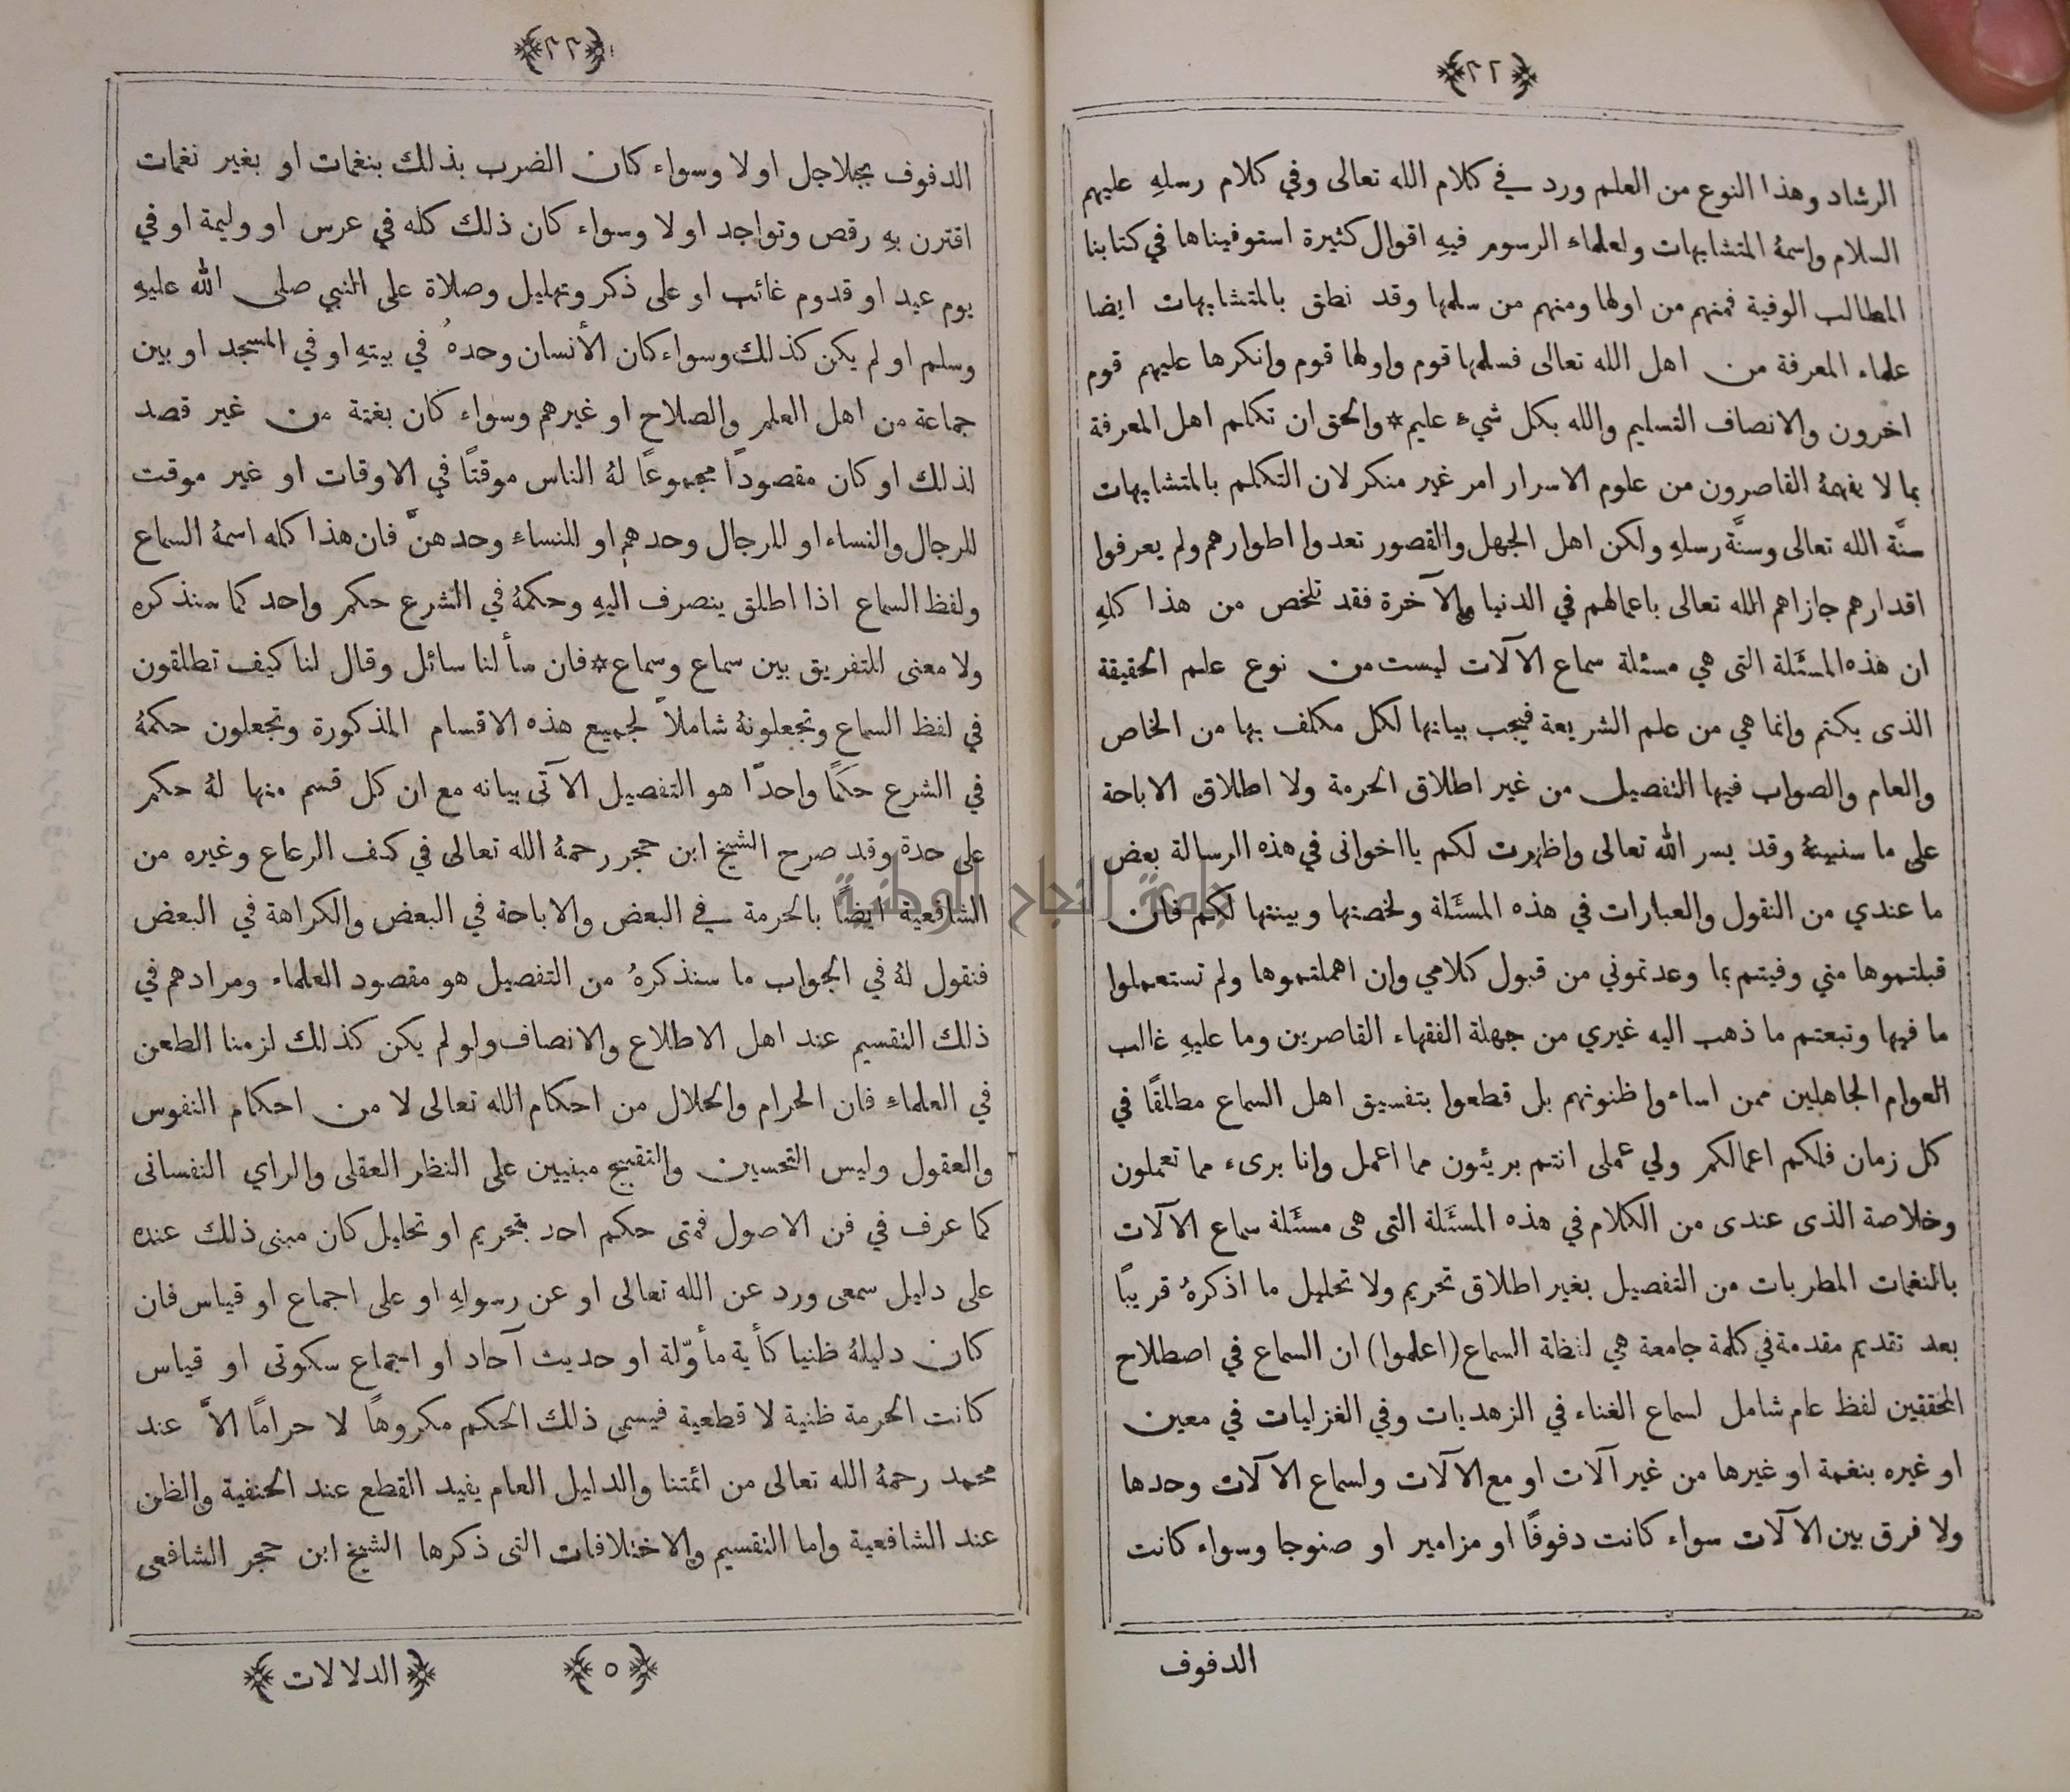 ﴿٣٢﴾
الرشاد وهذا النوع من العلم ورد في كلام الله تعالى وفي كلام رسلهِ عليهم
السلام واسمهُ المتشابهات ولعلماء الرسوم فيهِ اقوال كثيرة استوفيناها في كتابنا
المطالب الوفية فمنهم من اولها ومنهم من سلمها وقد نطق بالمتشابهات ايضا
علماء المعرفة من اهل الله تعالى فسلمها قوم واولها قوم وانكرها عليهم قوم
اخرون والانصاف التسليم والله بكل شيءٍ عليم * والحق ان تكلم اهل المعرفة
بما لا يفهمهُ القاصرون من علوم الاسرار امر غير منكر لان التكلم بالمتشابهات
سنَّة الله تعالى وسنَّة رسلهِ ولكن اهل الجهل والقصور تعدوا اطوارهم ولم يعرفوا
اقدارهم جازاهم الله تعالى باعمالهم في الدنيا والآخرة فقد تلخص من هذا كلهِ
ان هذه المسئَلة التى هي مسئلة سماع الآلات ليست من نوع علم الحقيقة
الذى يكتم وانما هي من علم الشريعة فيجب بيانها لكل مكلف بها من الخاص
والعام والصواب فيها التفصيل من غير اطلاق الحرمة ولا اطلاق الاباحة
على ما سنبينهُ وقد يسر الله تعالى واظهرت لكم يا اخوانى في هذه الرسالة بعض
ما عندي من النقول والعبارات في هذه المسئَلة ولخصتها وبينتها لكم فان
قبلتموها مني وفيتم بما وعدتموني من قبول كلامي وان اهملتموها ولم تستعملوا
ما فيها وتبعتم ما ذهب اليه غيري من جهلة الفقهاء القاصرين وما عليهِ غالب
العوام الجاهلين ممن اساءوا ظنونهم بل قطعوا بتفسيق اهل السماع مطلقًا في
كل زمان فلكم اعمالكم ولي عملى انتم بريئون مما اعمل وانا برىء مما تعملون
وخلاصة الذى عندى من الكلام في هذه المسئَلة التى هى مسئَلة سماع الآلات
بالنغمات المطربات من التفصيل بغير اطلاق تحريم ولا تحليل ما اذكرهُ قريبًا
بعد تقديم مقدمة في كلمة جامعة هي لفظة السماع (اعلموا) ان السماع في اصطلاح
المحققين لفظ عام شامل لسماع الغناء في الزهديات وفي الغزليات في معين
او غيره بنغمة او غيرها من غير آلات او مع الآلات ولسماع الآلات وحدها
ولا فرق بين الآلات سواء كانت دفوفًا او مزامير او صنوجا وسواء كانت
الدفوف
﴿٣٣﴾
الدفوف بجلاجل او لا وسواء كان الضرب بذلك بنغمات او بغير نغمات
اقترن بهِ رقص وتواجد او لا وسواء كان ذلك كله في عرس او وليمة او في
يوم عيد او قدوم غائب او على ذكر وتهليل وصلاة على النبي صلى الله عليهِ
وسلم او لم يكن كذلك وسواء كان الأنسان وحدهُ في بيتهِ او في المسجد او بين
جماعة من اهل العلم والصلاح او غيرهم وسواء كان بغتة من غير قصد
لذلك او كان مقصودًا مجموعًا لهُ الناس موقتًا في الاوقات او غير موقت
للرجال والنساء او للرجال وحدهم او للنساءِ وحدهنَّ فان هذا كله اسمهُ السماع
ولفظ السماع اذا اطلق ينصرف اليهِ وحكمهُ في الشرع حكم واحد كما سنذكره
ولا معنى للتفريق بين سماع وسماع * فان سألنا سائل وقال لنا كيف تطلقون
في لفظ السماع وتجعلونهُ شاملاً لجميع هذه الاقسام المذكورة وتجعلون حكمهُ
في الشرع حكمًا واحدًا هو التفصيل الآتى بيانه مع ان كل قسم منها لهُ حكم
على حدة وقد صرح الشيخ ابن حجر رحمهُ الله تعالى في كف الرعاع وغيره من
الشافعية ايضًا بالحرمة في البعض والاباحة في البعض والكراهة في البعض
فنقول لهُ في الجواب ما سنذكرهُ من التفصيل هو مقصود العلماء ومرادهم في
ذلك التقسيم عند اهل الاطلاع والانصاف ولو لم يكن كذلك لزمنا الطعن
في العلماءِ فان الحرام والحلال من احكام الله تعالى لا من احكام النفوس
والعقول وليس التحسين والتقبيح مبنيين على النظر العقلى والراي النفسانى
كما عرف في فن الاصول فمتى حكم احد بتحريم او تحليل كان مبنى ذلك عنده
على دليل سمعى ورد عن الله تعالى او عن رسولهِ او على اجماع او قياس فان
كان دليلهُ ظنيا كأية مأوّلة او حديث آحاد او اجماع سكوتى او قياس
كانت الحرمة ظنية لا قطعية فيسمى ذلك الحكم مكروهاً لا حرامًا الاَّ عند
محمد رحمهُ الله تعالى من ائمتنا والدليل العام يفيد القطع عند الحنفية والظن
عند الشافعية واما التقسيم والاختلافات التى ذكرها الشيخ ابن حجر الشافعى
﴿٥﴾ ﴿الدلالات﴾
جامعة النجاح الوطنية